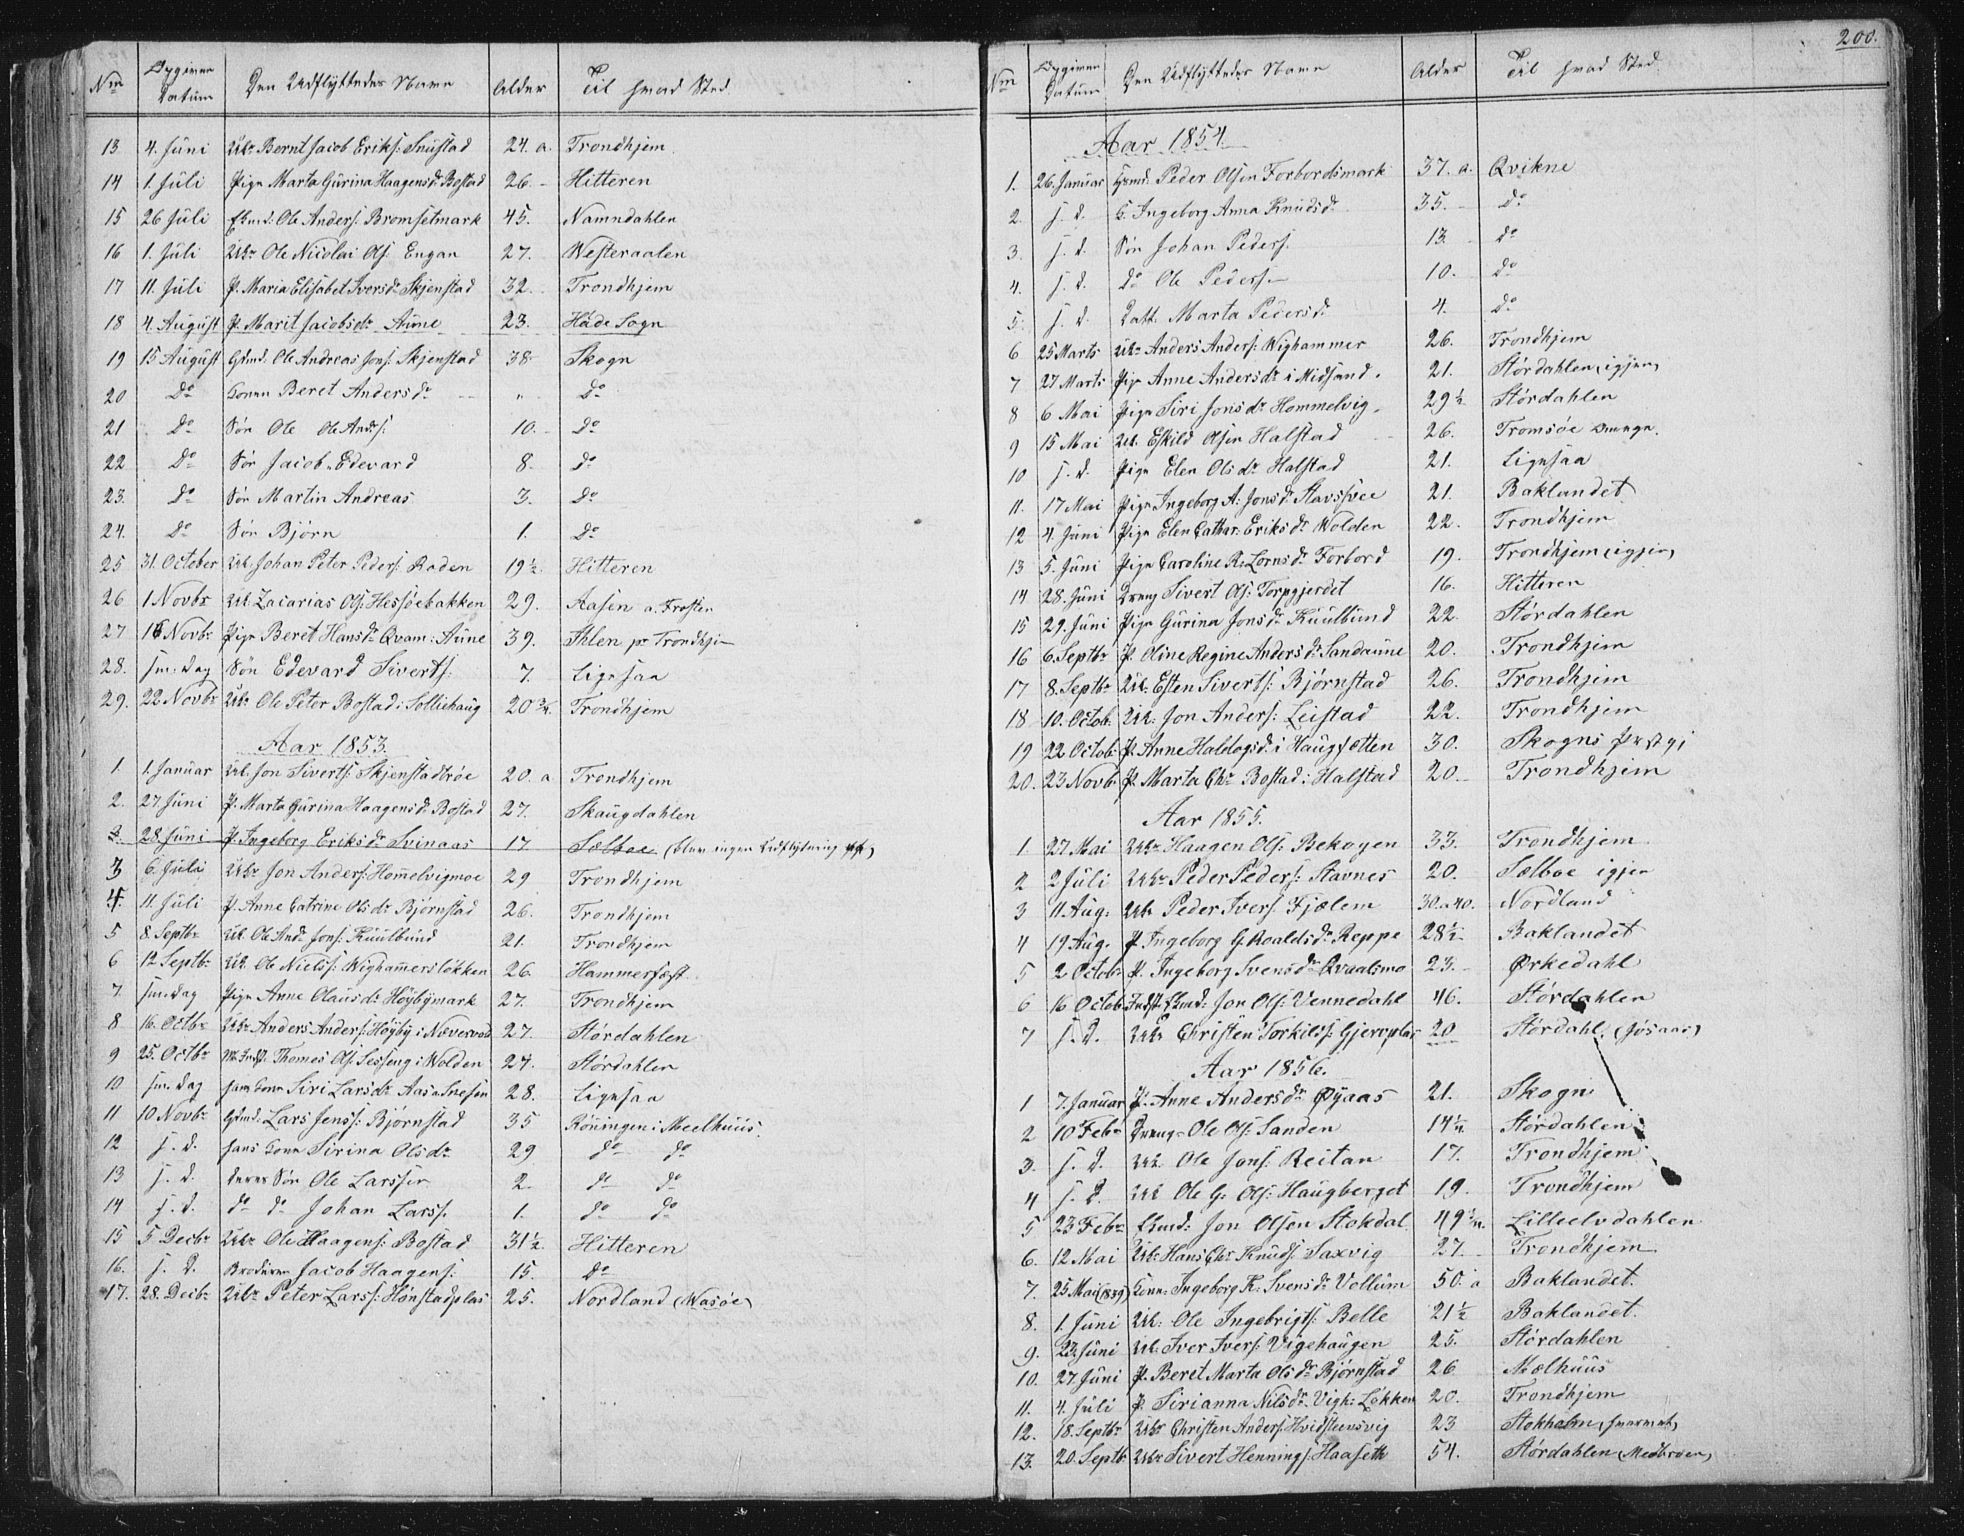 Nm Opgiven Datum Den Udflyttedes Navn Alder Til hvad Sted
13 4. Juni Uk: Bernt Jacob Eriks: Snustad 24. a. Trondhjem
14 1. Juli Pige Marta Gurina Haagensdr Bostad 26 - Hitteren
15 26 Juli Ekmd: Ole Anders: Bromsetmark 45. Namndahlen
16 1. Juli Uk: Ole Nicolai Ols: Engan 27. Westeraalen
17 11. Juli P. Maria Elisabet Iversdr Skjenstad 32. Trondhjem
18 4. August P. Marit Jacobsdr Aune 23. Hade Sogn
19 15 August Gdmd. Ole Andreas Jons: Skjenstad 38. Skogn
20 Do Konen Beret Andersdr „ Do
21 Do Søn Ole Ole Ands: 10. Do
22 Do Søn Jacob Edevard 8. Do
23. Do Søn Martin Andreas 3. Do
24. Do Søn Bjørn 1. Do
25 31. October Uk. Johan Peter Peders: Baden 19½. Hitteren
26 1 Novbr Uk. Zacarias Ols: Hessøebakken 29. Aasen a. Frosten
27 16 Novbr Pige Beret Hansdr Qvam: Aune 39. Ihlen pr Trondhjem
28. sm: Dag Søn Edevard Siverts: 7. Ligesaa
29. 22 Novbr Uk: Ole Peter Bostad i Solliehaug 20¾. Trondhjem
Aar 1853.
1. 1. Januar Uk. Jon Siverts: Skjenstadtrøe 20. a Trondhjem
2. 27 Juni P. Marta Gurina Haagensdr Bostad 27. Skaugdahlen
3. 28 Juni P. Ingeborg Eriksdr Svinaas 17. Sælboe (blev ingen Udflytning af)
3 6. Juli Uk: Jon Anders: Homelvigmoe 29 Trondhjem
4. 11. Juli P. Anne Catrine Olsdr Bjørnstad 26. Trondhjem
5 8. Septbr Uk. Ole Andr Jons: Kuulbund 21. Trondhjem
6 12 Septbr Uk. Ole Niels: Wighamersløkken 26. Hammerfæst
7. sm. Dag Pige Anne Olausdr Høybymark 27. Trondhjem
8 16. Octbr Uk: Anders Anders: Høyby i Næverved 27. Størdahlen
9 25. Octbr Thomes Ols: Sesseng i Wolden 24. Størdahlen
10 sm. Dag hans Kone Siri Larsdr 28. Ligesaa
11 10 Novbr Gdmd. Lars Jenss: Bjørnstad 35 Røningen i Meelhuus.
12 s. D. hans Kone Sirina Olsdr 29 do do
13 s. D. deres Søn Ole Larssen 2. do do
14 s. D. do do Johan Larss. 1. do do
15 5 Decbr Uk: Ole Haagens: Bostad 31½ Hitteren
16. s. D. Broderen Jacob Haagens: 15. Do
17. 28. Decbr Uk: Peter Lars: Hønstadplas 25. Nordland (Wasøe)
200.
Nm Opgiven Datum Den Udflyttedes Navn Alder Til hvad Sted
Aar 1854.
1. 26. Januar Huusmd. Peder Olsen Forbordsmark 37. a. Qvikne
2. s. d. K. Ingeborg Anna Knudsdr 35. Do
3. s. d. Søn Johan Peders. 13. do
4. s. d. Do Ole Peders. 10. do
5. s. d. Datt. Marta Pedersdr 4. Do
6 25 Marts Uk: Anders Anders: Wighammer 26. Trondhjem
7 27 Marts Pige Anne Andersdr i Midsand. 21. Størdahlen (igjen)
8 6 Mai Pige Siri Jonsdr Hommelvig. 29½ Størdahlen
9 15 Mai Uk. Eskild Olsen Halstad 26. Tromsøe
10 s. d. Pige Elen Olsdr Halstad 21. Ligesaa
11. 17 Mai Pige Ingeborg A: Jonsdr Stavssvee 21. Baklandet
12 4. Juni Pige Elen Cathar: Eriksdr Wolden 22. Trondhjem
13 5. Juni Pige Caroline R: Lornsdr Forbord 19. Trondhjem (igjen)
14 28. Juni Dreng Sivert Ols: Torpgjerdet 16. Hitteren
15 29. Juni Pige Gurina Jonsdr Kuulbund 22. Størdahlen
16 6. Septbr P. Oline Regine Andersdr Sandaune 20. Trondhjem
17 8. Septbr Uk. Esten Siverts: Bjørnstad 26. Trondhjem
18 10. Octob: Uk: Jon Anders: Leistad 22. Trondhjem
19 22 Octob: P. Anne Haldogsdr i Haugsetten 30. Skogns Prstgj
20. 23 Novb: P. Marta Chr Bostad i Halstad 20. Trondhjem
Aar 1855.
1. 27 Mai Uk: Haagen Ols: Bekøgen 33. Trondhjem
2 2 Juli Uk: Peder Peders: Stavnes 20. Sælboe igjen
3 11. Aug. Uk: Peder Ivers: Fjælem 30. a 40. Nordland
4 19 Aug. P. Ingeborg G. Roaldsdr Reppe 28½ Baklandet
5 2 Octob: P. Ingeborg Svensdr Qvaalsmo 23. Ørkedahl
6 16 Octob: Indst: Ekmd: Jon Ols: Vennedahl 46. Størdahlen
7 s. D. Uk: Christen Torkilss: Gjervplas 20 Størdahl. (Jøsaas)
Aar 1856.
1 7. Januar P. Anne Andersdr Øyaas 21. Skogn
2 10 Febr Dreng Ole Ols: Sanden 14½. Størdahlen
3. s. D. Uk. Ole Jons: Reitan 17. Trondhjem
4 s. D. Uk Ole G. Ols: Haugberget 19. Trondhjem
5 23 Febr Ekmd: Jon Olsen Stokdal 49½. Lilleelvdahlen
6. 12 Mai Uk: Hans Chr Knuds: Saxvig 27. Trondhjem
7. 25 Mai (1839) Kone: Ingeborg K: Svensdr Vollum 50. a Baklandet.
8. 1. Juni Uk: Ole Ingebrigts: Belle 21½ Baklandet.
9. 23. Juni Uk. Iver Ivers: Vigehaugen 25. Størdahlen
10. 27. Juni P. Beret Marta Olsdr Bjørnstad 26 Mælhuus
11. 4. Juli P. Sirianna Nilsdr Vigh: Løkken 20. Trondhjem
12. 18. Septbr Uk: Christen Anders: Hvidsteensvig 23 Stokholm
13. 20. Septbr Uk: Sivert Hennings: Haaseth 54. Størdahlen (Medbroen)